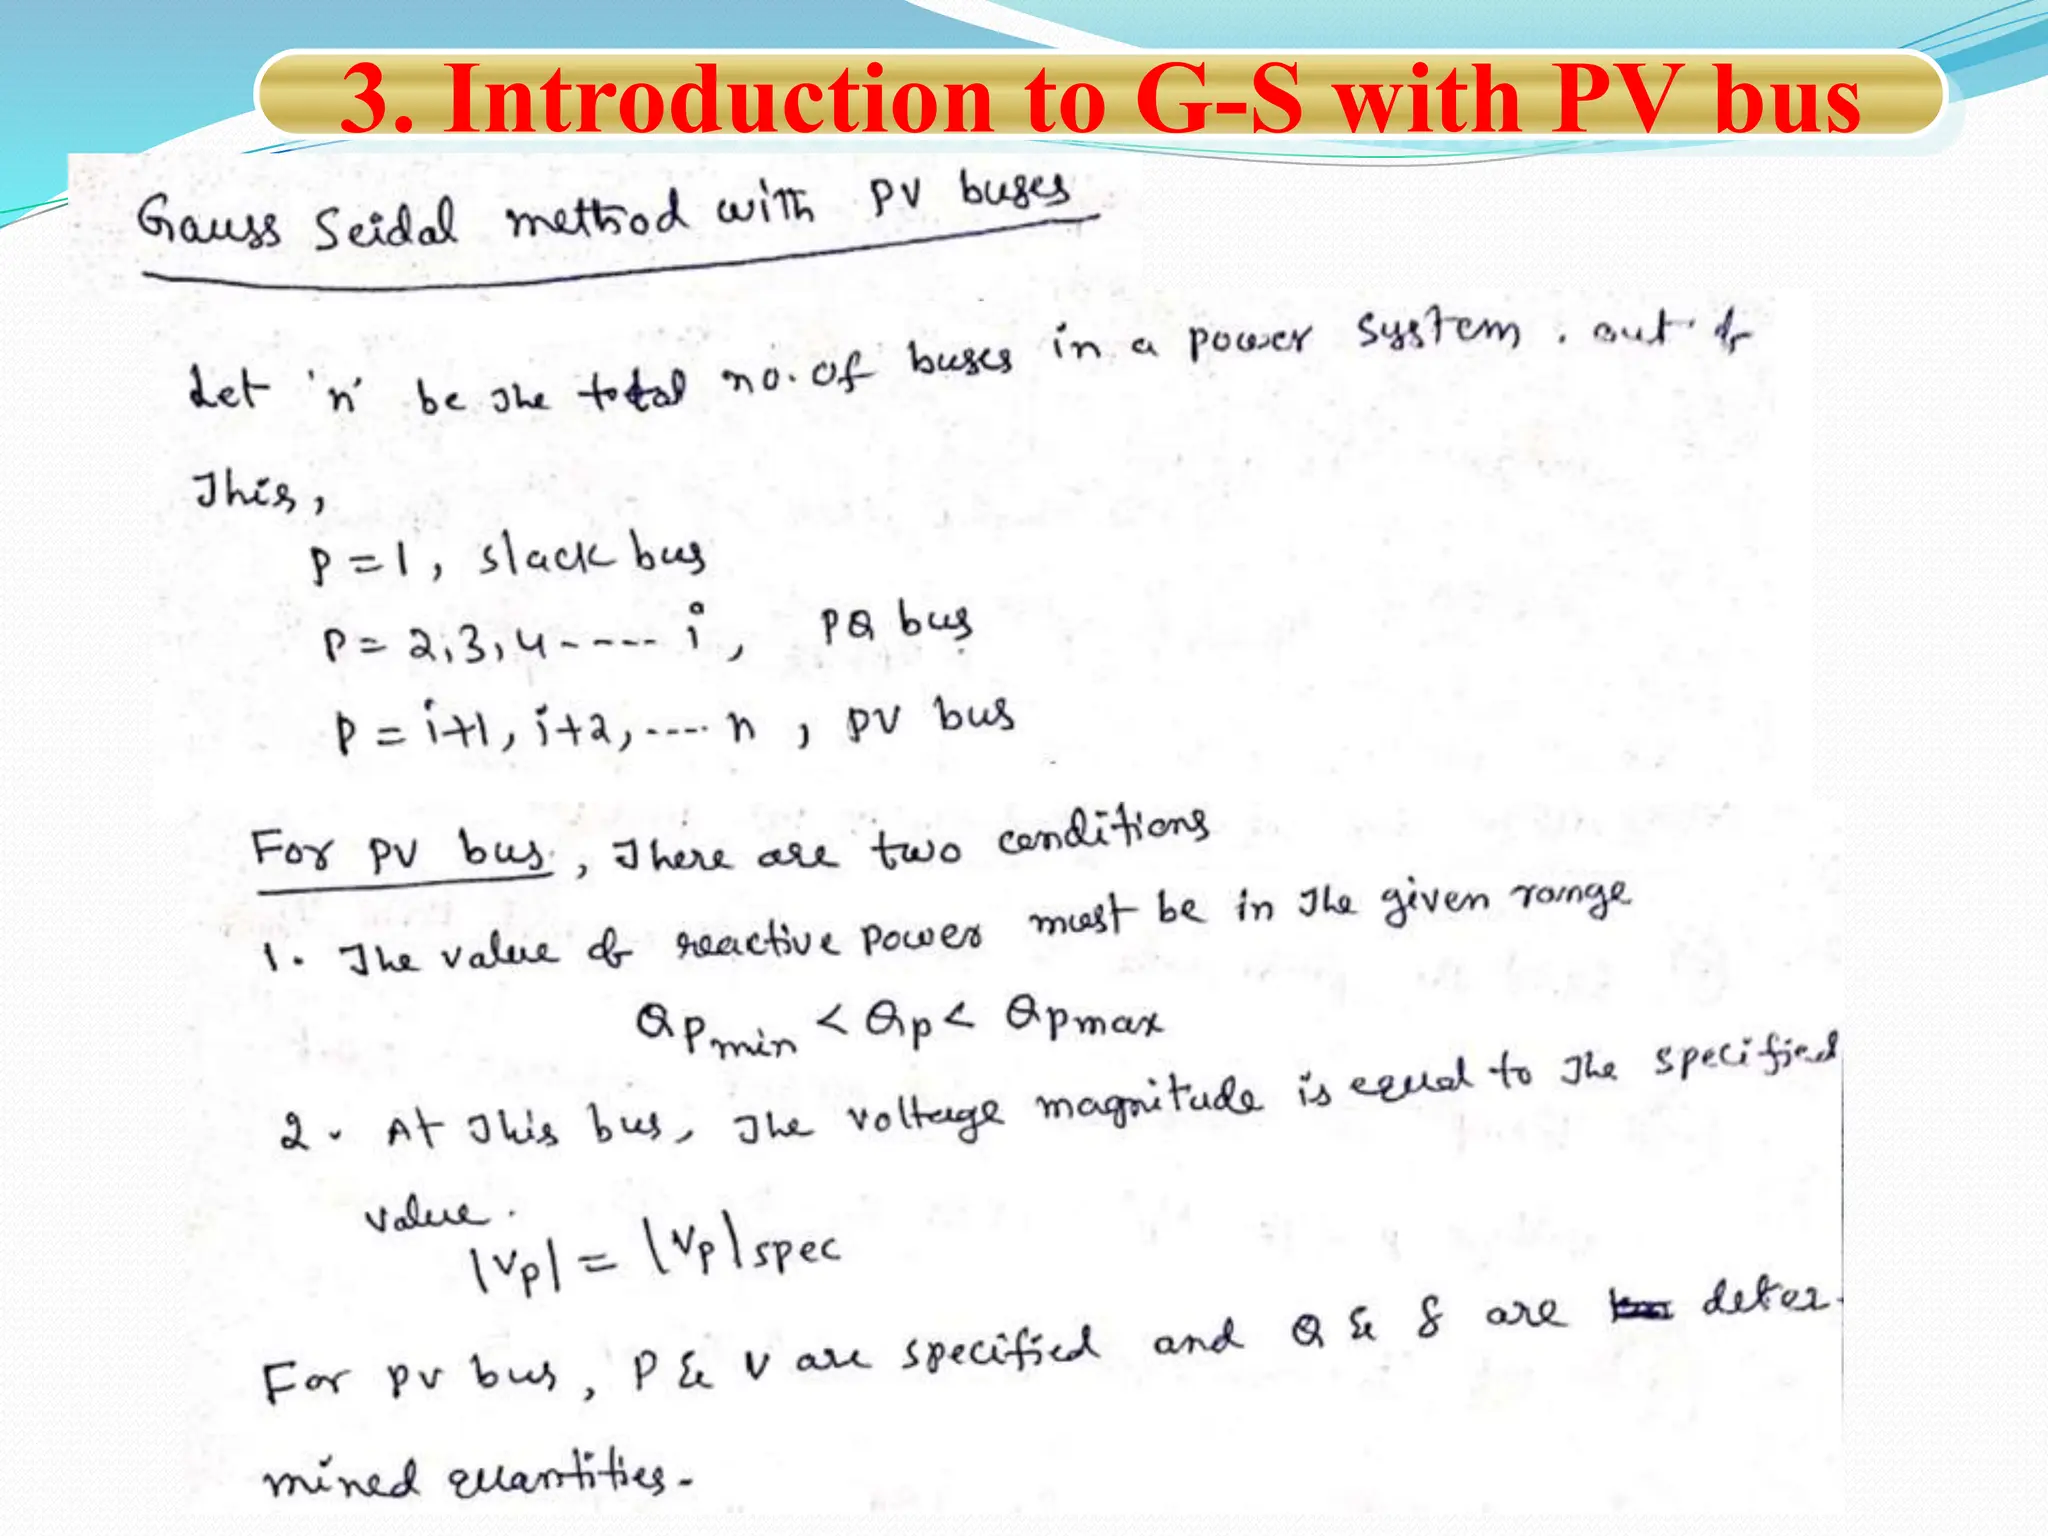 3. Introduction to G-S with PV bus
Gauss Seidal method with PV buses
Let 'n' be the total no. of buses in a power system. out of
This,
P = 1, slack bus
P = 2, 3, 4 ----- i, PQ bus
P = i+1, i+2, ---- n, PV bus
For PV bus, There are two conditions
1. The value of reactive power must be in the given range
QPmin < Qp < QPmax
2. At This bus, The voltage magnitude is equal to The specified
value.
|Vp| = |Vp|spec
For PV bus, P & V are specified and Q & δ are deter-
mined quantities.